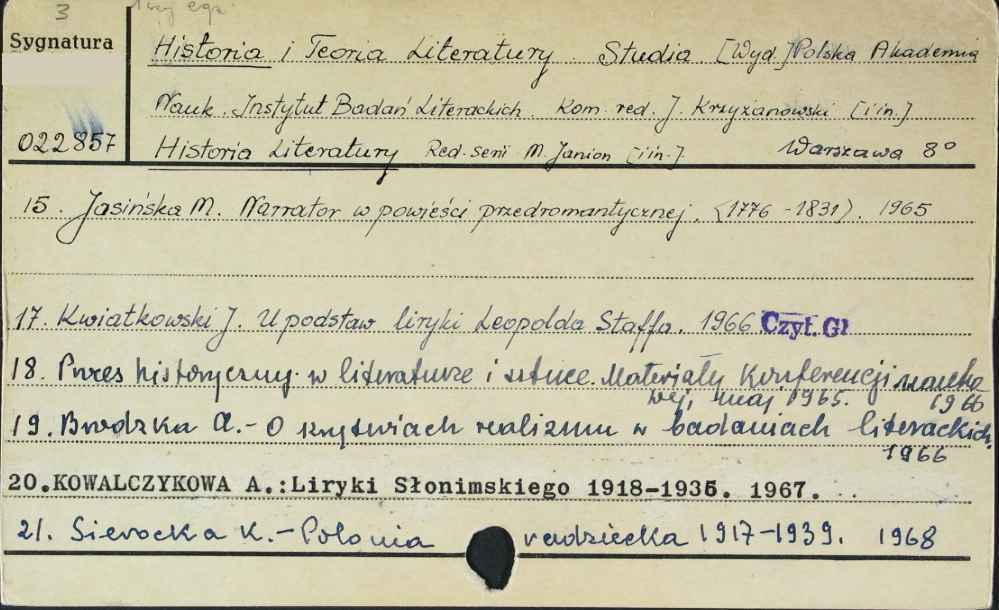 3
egz.
Sygnatura
Historia i Teoria Literatury. Studia [Wyd.] Polska Akademia
Nauk. Instytut Badań Literackich. Kom. red. J. Krzyżanowski [i in.]
022857
Historia Literatury Red. serii M. Janion [i in.] Warszawa 8°
15. Jasińska M. Narrator w powieści przedromantycznej. (1776-1831). 1965
17. Kwiatkowski J. U podstaw liryki Leopolda Staffa. 1966 Czyt. Gł
18. Proces historyczny w literaturze i sztuce. Materiały Konferencji nauko
wej, maj 1965. 1966
19. Brodzka A. - O kryteriach realizmu w badaniach literackich.
1966
20. KOWALCZYKOWA A.: Liryki Słonimskiego 1918-1935. 1967.
21. Sierocka K. - Polonia radziecka 1917-1939. 1968